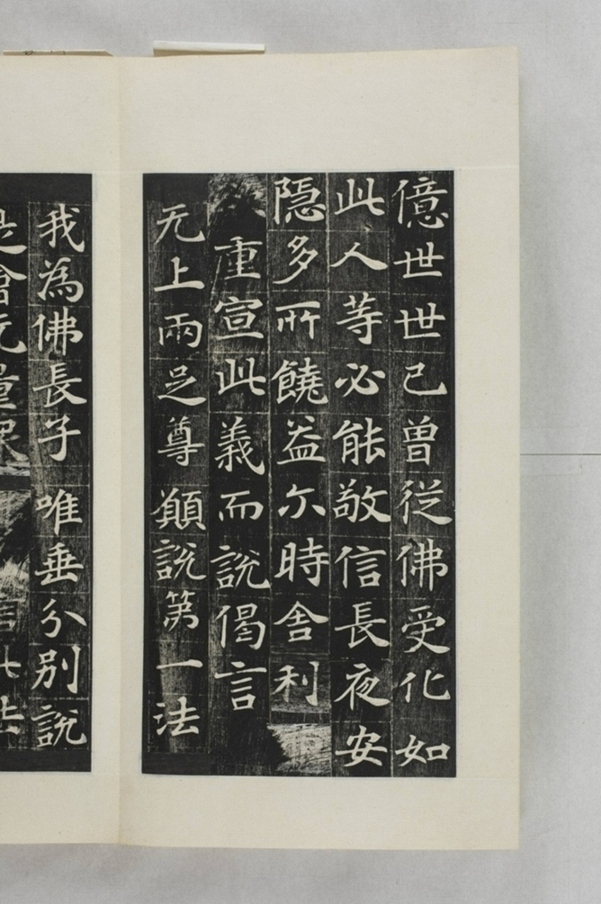 億世世已曽從佛受化如
此人等必能敬信長夜安
隱多所饒益尒時舍利
重宣此義而說偈言
无上兩足尊願說第一法
我為佛長子唯垂分別說
是會无量眾